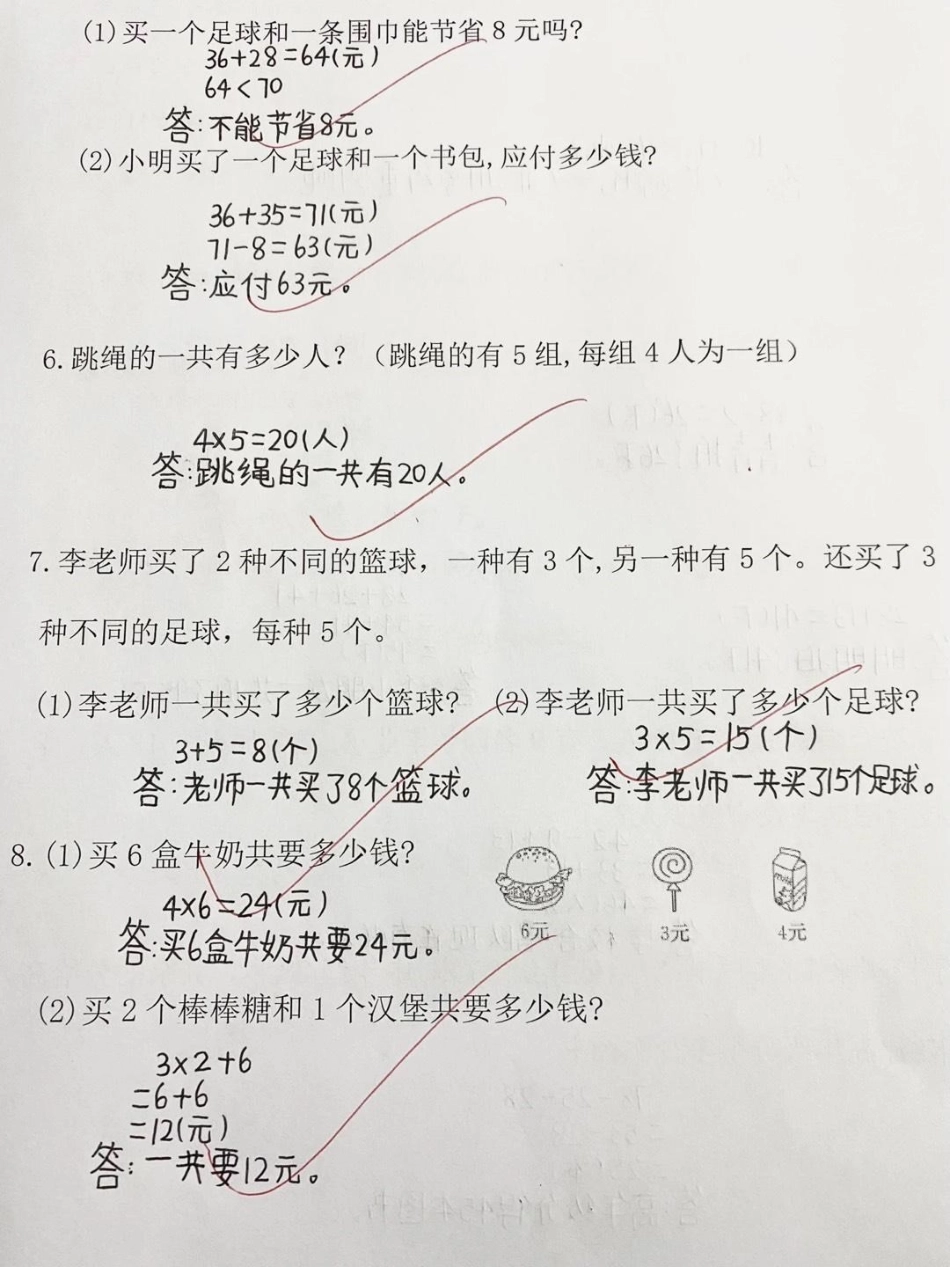 (1)买一个足球和一条围巾能节省8元吗?
36+28=64(元)
64<70
答:不能节省8元。
(2)小明买了一个足球和一个书包,应付多少钱?
36+35=71(元)
71-8=63(元)
答:应付63元。
6.跳绳的一共有多少人？（跳绳的有5组,每组4人为一组）
4×5=20(人)
答:跳绳的一共有20人。
7.李老师买了2种不同的篮球，一种有3个,另一种有5个。还买了3
种不同的足球，每种5个。
(1)李老师一共买了多少个篮球? (2)李老师一共买了多少个足球?
3+5=8(个) 3×5=15(个)
答:老师一共买了8个篮球。 答:李老师一共买了15个足球。
8.(1)买6盒牛奶共要多少钱?
4×6=24(元)
答:买6盒牛奶共要24元。
milk
6元 3元 4元
(2)买2个棒棒糖和1个汉堡共要多少钱?
3×2+6
=6+6
=12(元)
答:一共要12元。